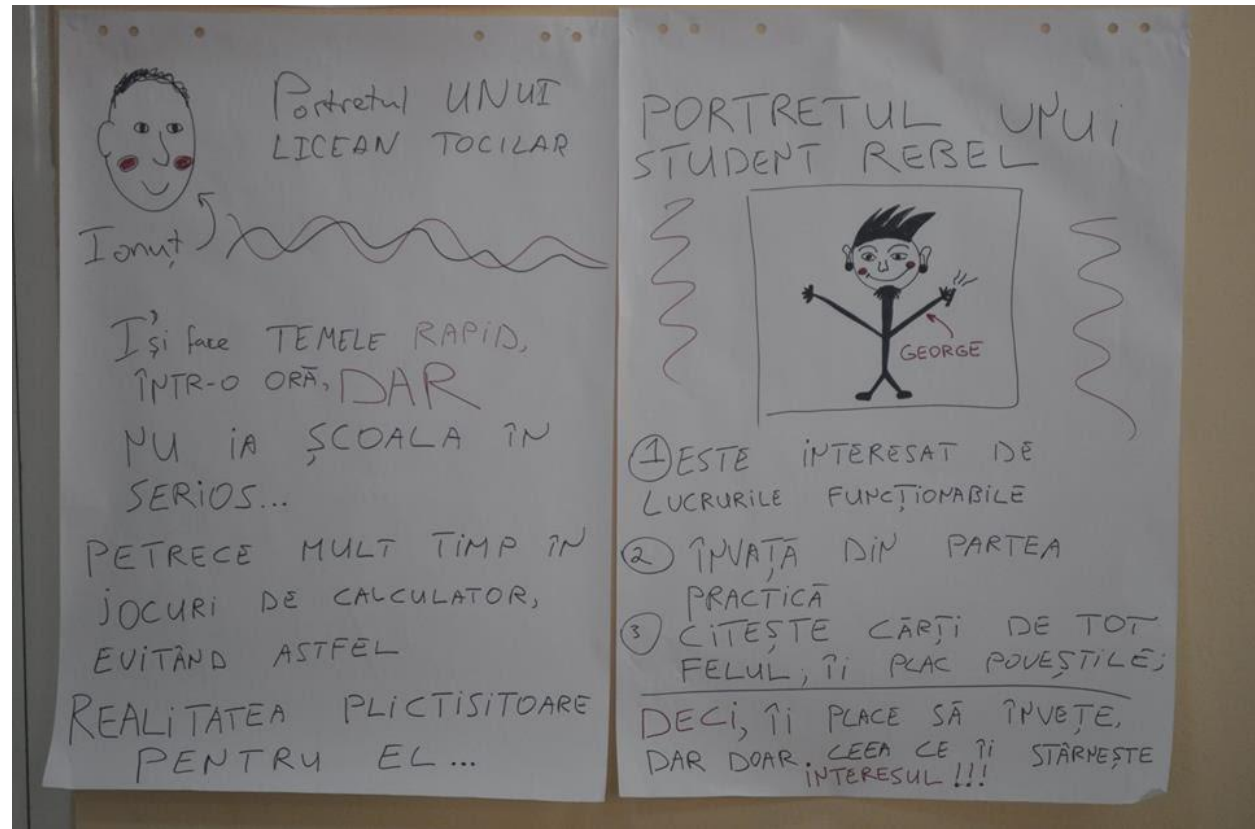 Portretul UNUI
LICEAN TOCILAR
Ionuț
Își face TEMELE RAPID,
ÎNTR-O ORĂ, DAR
NU IA ȘCOALA ÎN
SERIOS...
PETRECE MULT TIMP ÎN
JOCURI DE CALCULATOR,
EVITÂND ASTFEL
REALITATEA PLICTISITOARE
PENTRU EL...
PORTRETUL UNUI
STUDENT REBEL
GEORGE
1 ESTE INTERESAT DE
LUCRURILE FUNCȚIONABILE
2 ÎNVAȚĂ DIN PARTEA
PRACTICĂ
3 CITEȘTE CĂRȚI DE TOT
FELUL, ÎI PLAC POVEȘTILE;
DECI, ÎI PLACE SĂ ÎNVEȚE,
DAR DOAR CEEA CE ÎI STÂRNEȘTE
INTERESUL!!!